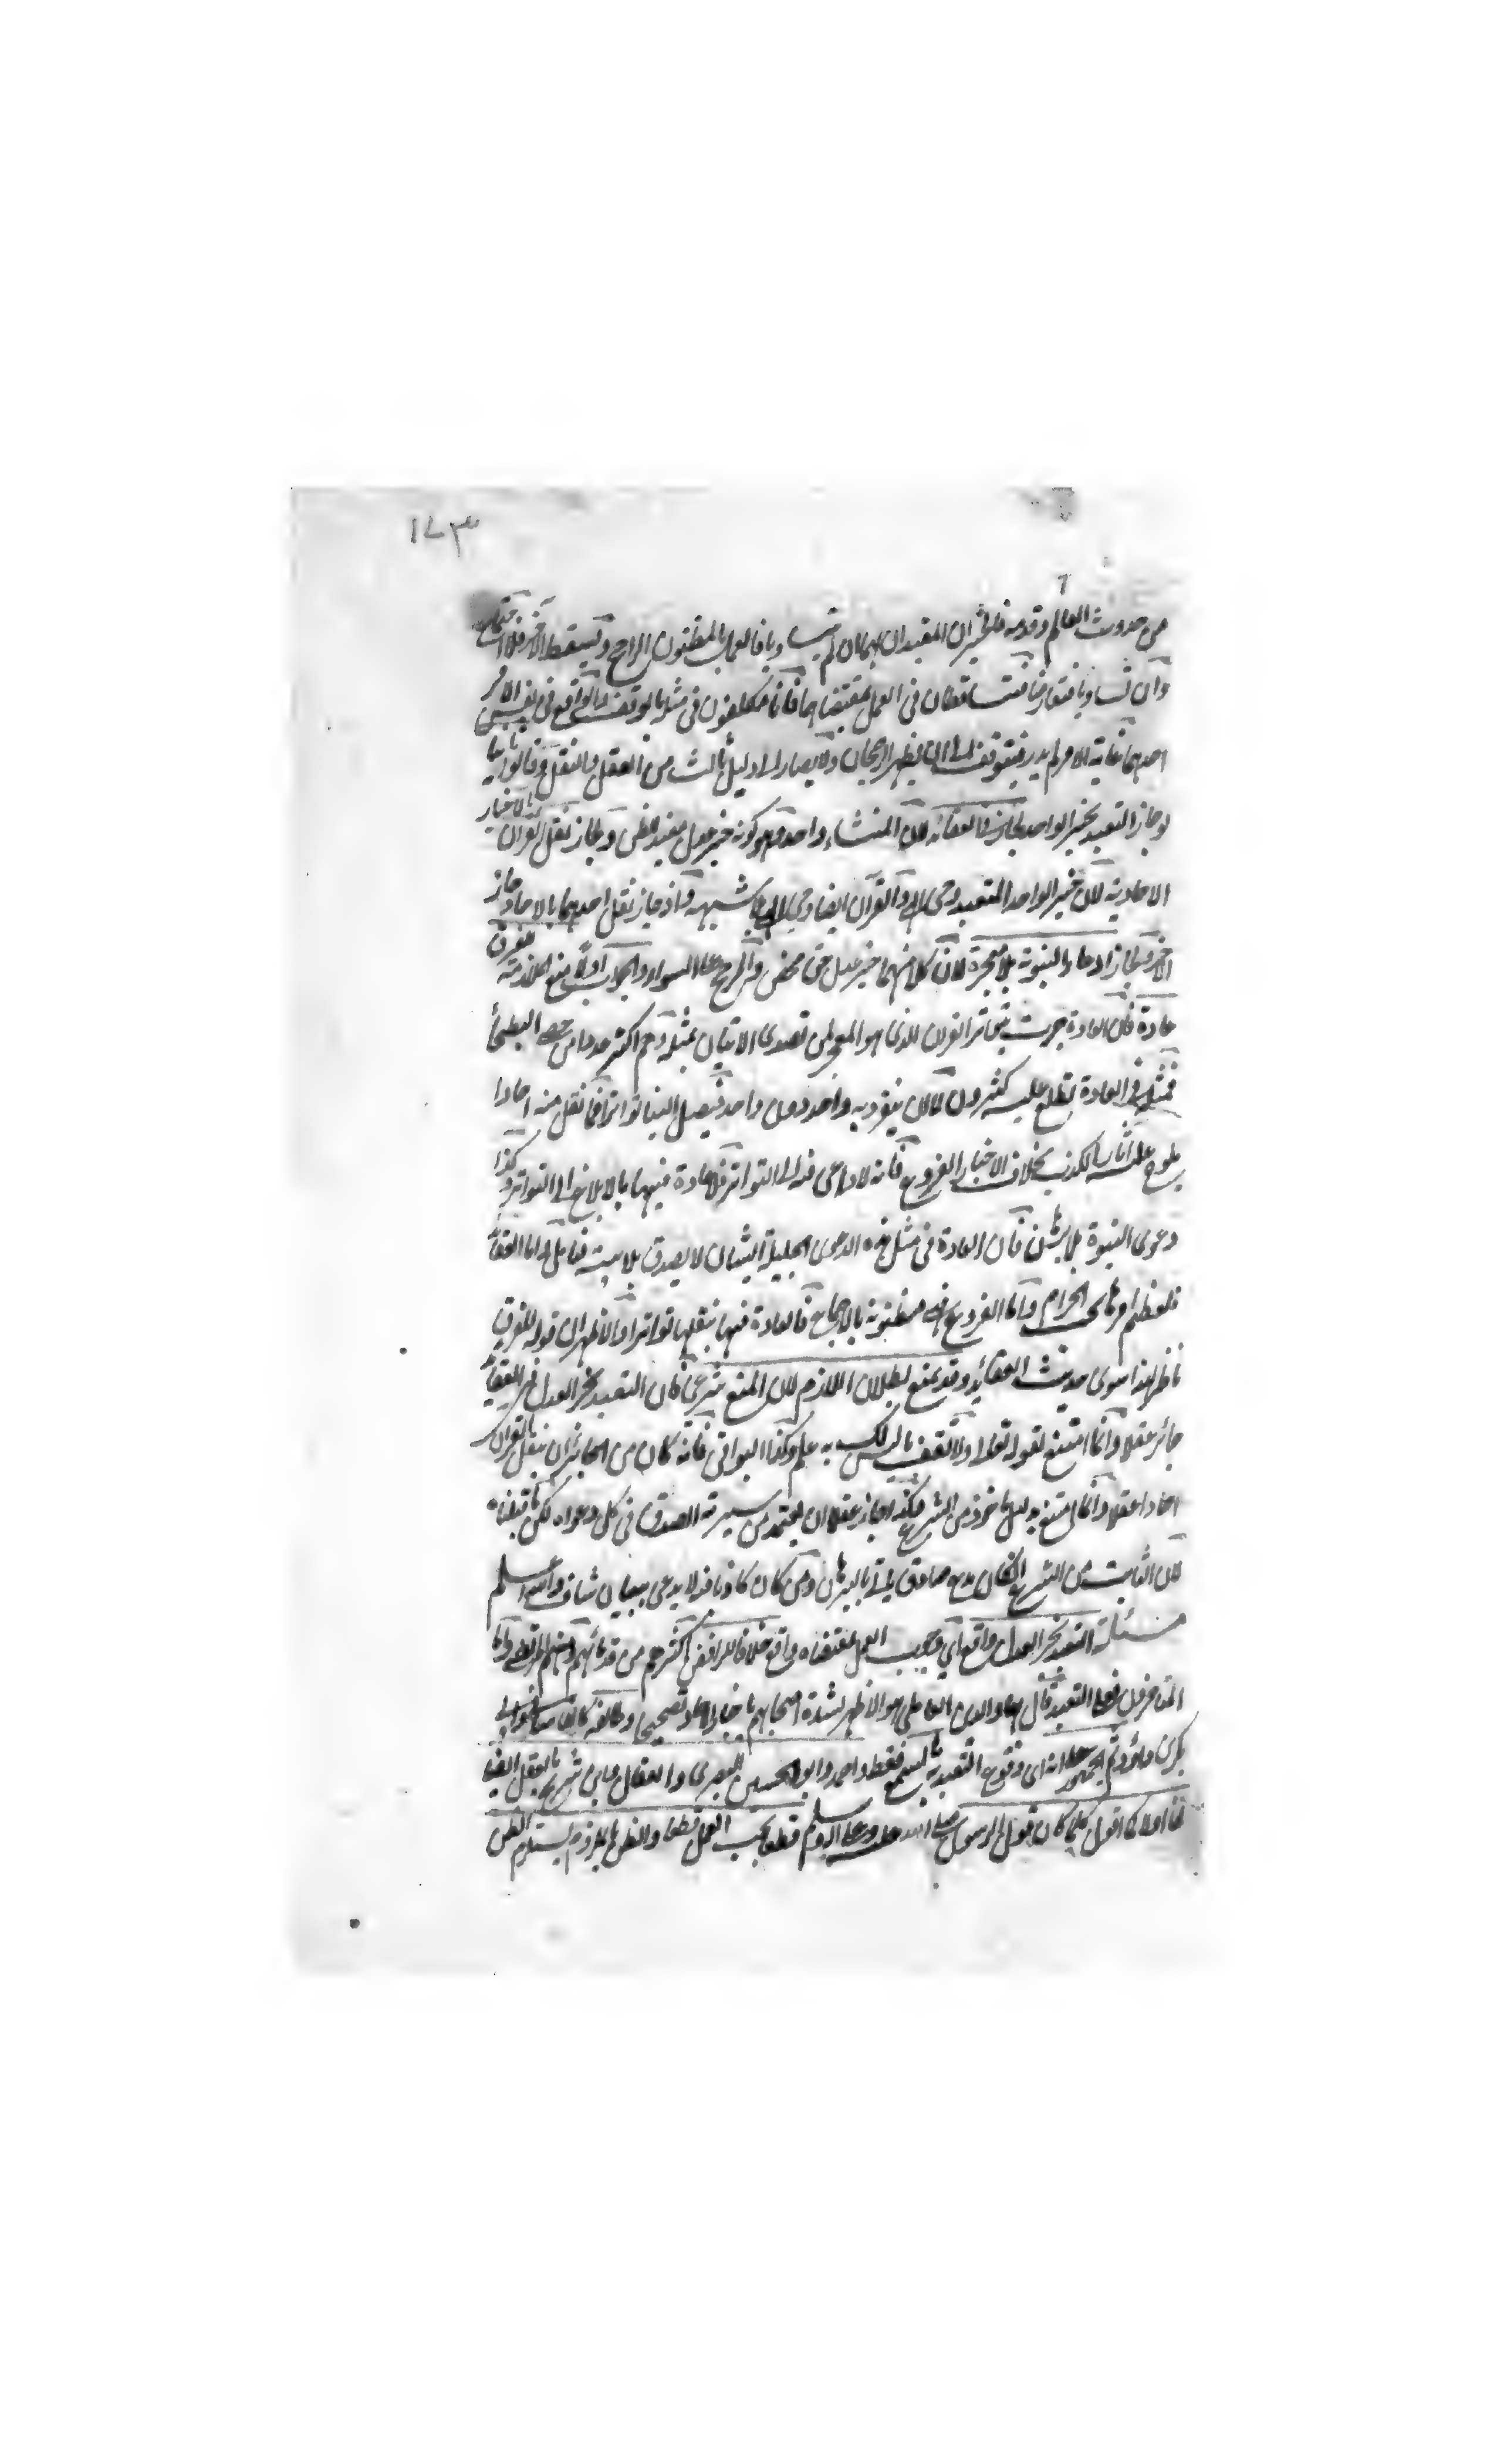 ١٧٣
من حدوث العالم وقدمه فالخبران المفيدان لهما ان لم يتساويا فالعمل بالمظنون الراجح ويسقط الآخر فلا
وان تساويا فتعارضا فتساقطان في العمل بمقتضاهما فانا مكلفون في مثله بالتوقف والواقع في نفس الامر
احدهما غاية الامر لم يدر فيتوقف الى ان يظهر الرجحان ولا يصار الى دليل ثالث من العقل والنقل وقالوا ثانيا
لو جاز التعبد بخبر الواحد لجاز في العقائد لان المنشاء واحد وهو كونه خبر عدل مفيد للظن ولجاز نقل القرآن بالاخبار
الاحادية لان خبر الواحد المتعبد وحي الهي والقرآن ايضا وحي الهي بلا شبهة واذ جاز نقل احدهما بالاحاد جاز
الآخر ولجاز ادعاء النبوة بلا معجزة لان كلا منهما خبر عدل حق محض والحرج على السواء والجواب اولا منع الملازمة للفرق
عادة فان العادة جرت بتواتر القرآن الذي هو المعجز لمن تصدى الاتيان بمثله وهم اكثر عددا من حصى البطحاء
فمثله في العادة يطلع عليه كثيرون لا ان يتفرد به واحد دون واحد فيصل الينا تواترا فما نقل منه احادا
يلوح عليه آثار الكذب بخلاف الاخبار الفروع فانه لا داعي فيه الى التواتر فلا عادة فيها بالابلاغ الى التواتر وكذا
دعوى النبوة بلا برهان فان العادة في مثل هذه الدعوى الجليلة الشان لا يصدق بلا بينة فتامل واما العقائد
فلعظم امرها الحرام واما الفروع فهي مظنونة بالاجماع فالعادة فيها بنقلها تواترا والاظهر ان قوله للفرق
ناظر لهذا سوى حديث العقائد وقد يمنع بطلان اللازم لان المنع شرعي فان التعبد بخبر العدل في العقائد
جائز عقلا وانما امتنع لقوله تعالى ولا تقف ما ليس لك به علم وكذا البواقي فانه كان من الجائز ان ينقل القرآن
احادا عقلا وانما امتنع بدليل ماخوذ من الشرع وكذا جاز عقلا ان يعتمد من سيرته الصدق في كل دعواه لكن ما قبلناه
لان الثابت من الشرع ان كان مدع صادق ياتي بالبرهان ومن كان كاذبا فلا يدعي ببيان شاف والله اعلم
مسئلة التعبد بخبر العدل واقع اي وجوب العمل بمقتضاه واقع خلافا للرافض اكثرهم من قدمائهم ومنهم المرتضى واما
المتاخرون فعلى التعبد قال بهاء الدين العاملي هو الاظهر لشدة اصحابهم باخبار الاحاد تصحيحا وطائفة
بكر بن داؤد ثم الجمهور على انه اي وقوع التعبد به بالسمع فقط واحمد وابو الحسين البصري والقفال وابن شريح بالعقل ايضا
لنا اولا كما اقول كلما كان قول الرسول صلى الله عليه وعلى اله وسلم قطعا يجب العمل قطعا والظن بالملزوم يستلزم الظن